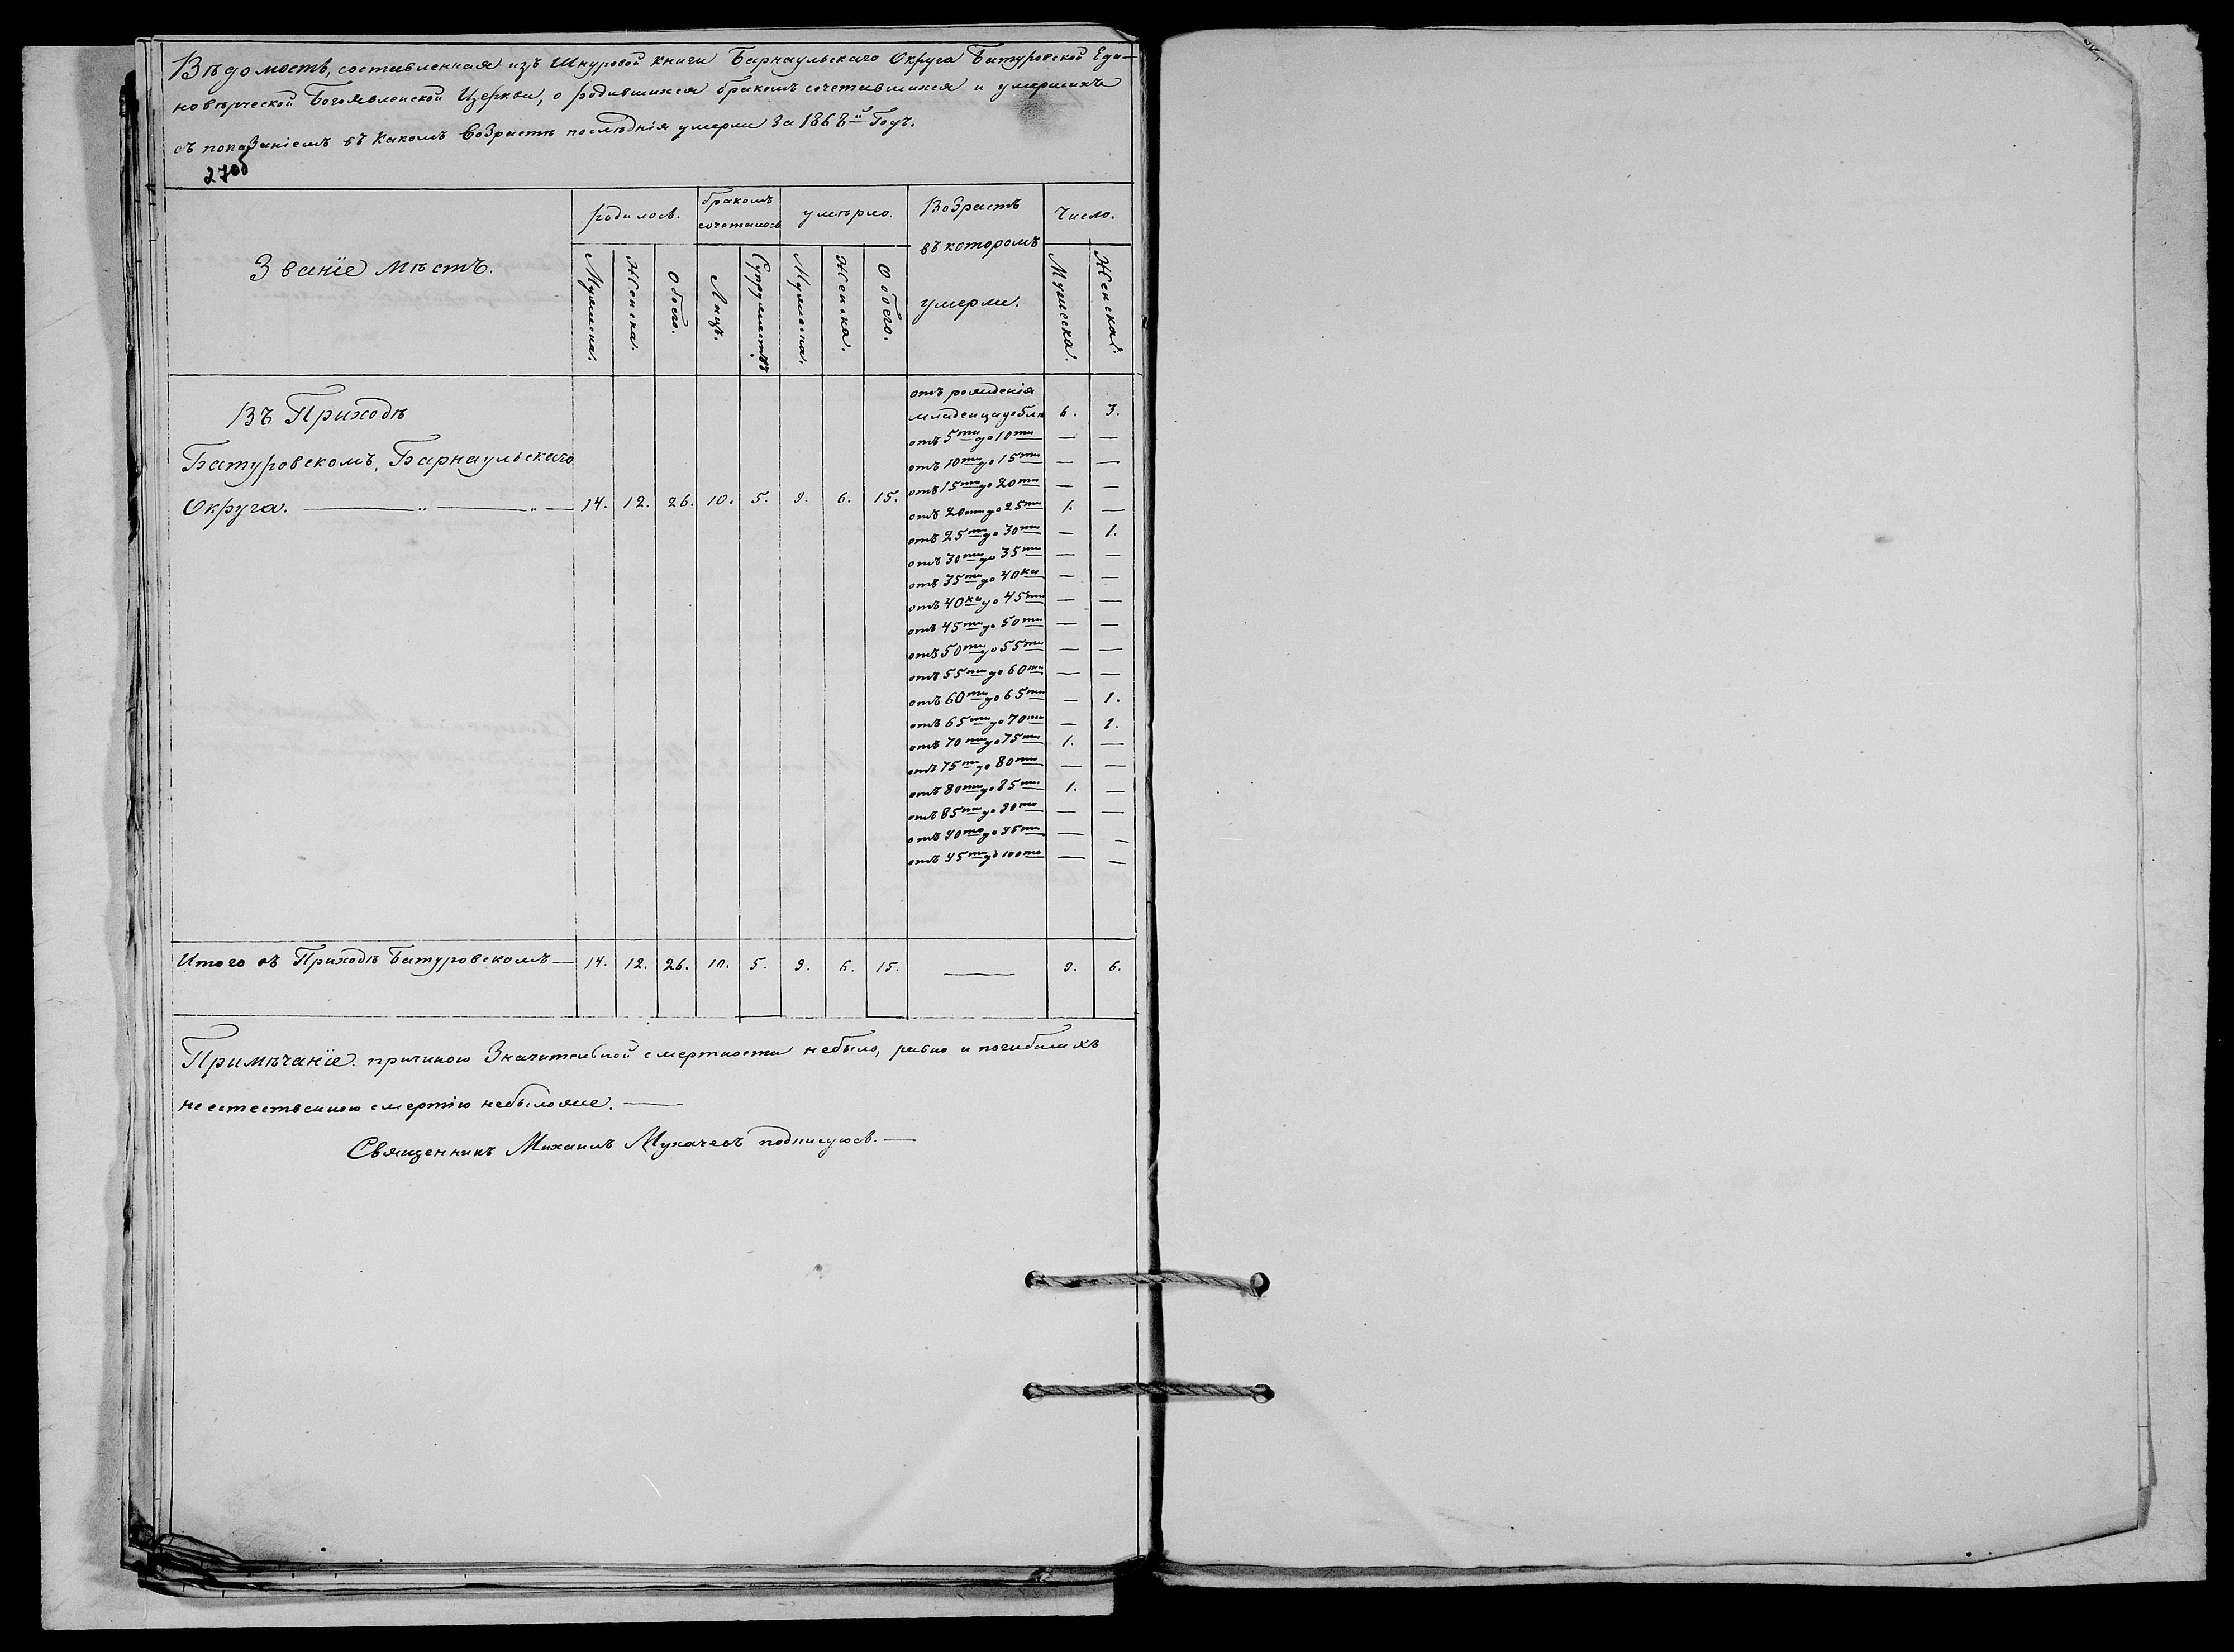 Вѣдомость, составленная изъ Шнуровой книги Барнаульскаго Округа Батуровской Еди-
новѣрческой Богоявленской Церкви, о родившихся бракомъ сочетавшихся и умершихъ
съ показаніемъ въ какомъ возрастѣ послѣднія умерли за 1868й Годъ.
270б
Званіе мѣстъ. родилось. бракомъ сочеталось умѣрло. Возрастъ въ которомъ умерли. Число.
Мужеска. Женска. Обоего. Лицъ. Супружествъ Мужеска. Женска. Обоего. Мужеска. Женска.
отъ рожденія
младенца до 5 ли 6. 3.
отъ 5ти до 10ти — —
отъ 10ти до 15ти — —
отъ 15ти до 20ти — —
отъ 20ти до 25ти 1. —
отъ 25ти до 30ти — 1.
отъ 30ти до 35ти — —
отъ 35ти до 40ка — —
отъ 40ка до 45ти — —
отъ 45ти до 50ти — —
отъ 50ти до 55ти — —
отъ 55ти до 60ти — —
отъ 60ти до 65ти — 1.
отъ 65ти до 70ти — 1.
отъ 70ти до 75ти 1. —
отъ 75ти до 80ти — —
отъ 80ти до 85ти 1. —
отъ 85ти до 90то — —
отъ 90то до 95ти — —
отъ 95ти до 100то — —
Въ Приходѣ
Батуровскомъ, Барнаульскаго
Округа. — „ — „ — 14. 12. 26. 10. 5. 9. 6. 15.
Итого въ Приходѣ Батуровскомъ — 14. 12. 26. 10. 5. 9. 6. 15. — 9. 6.
Примѣчаніе. причиною значительной смертности небыло, равно и погибшихъ
неестественною смертію небыложе. —
Священникъ Михаилъ Мухачевъ подписуюсь. —